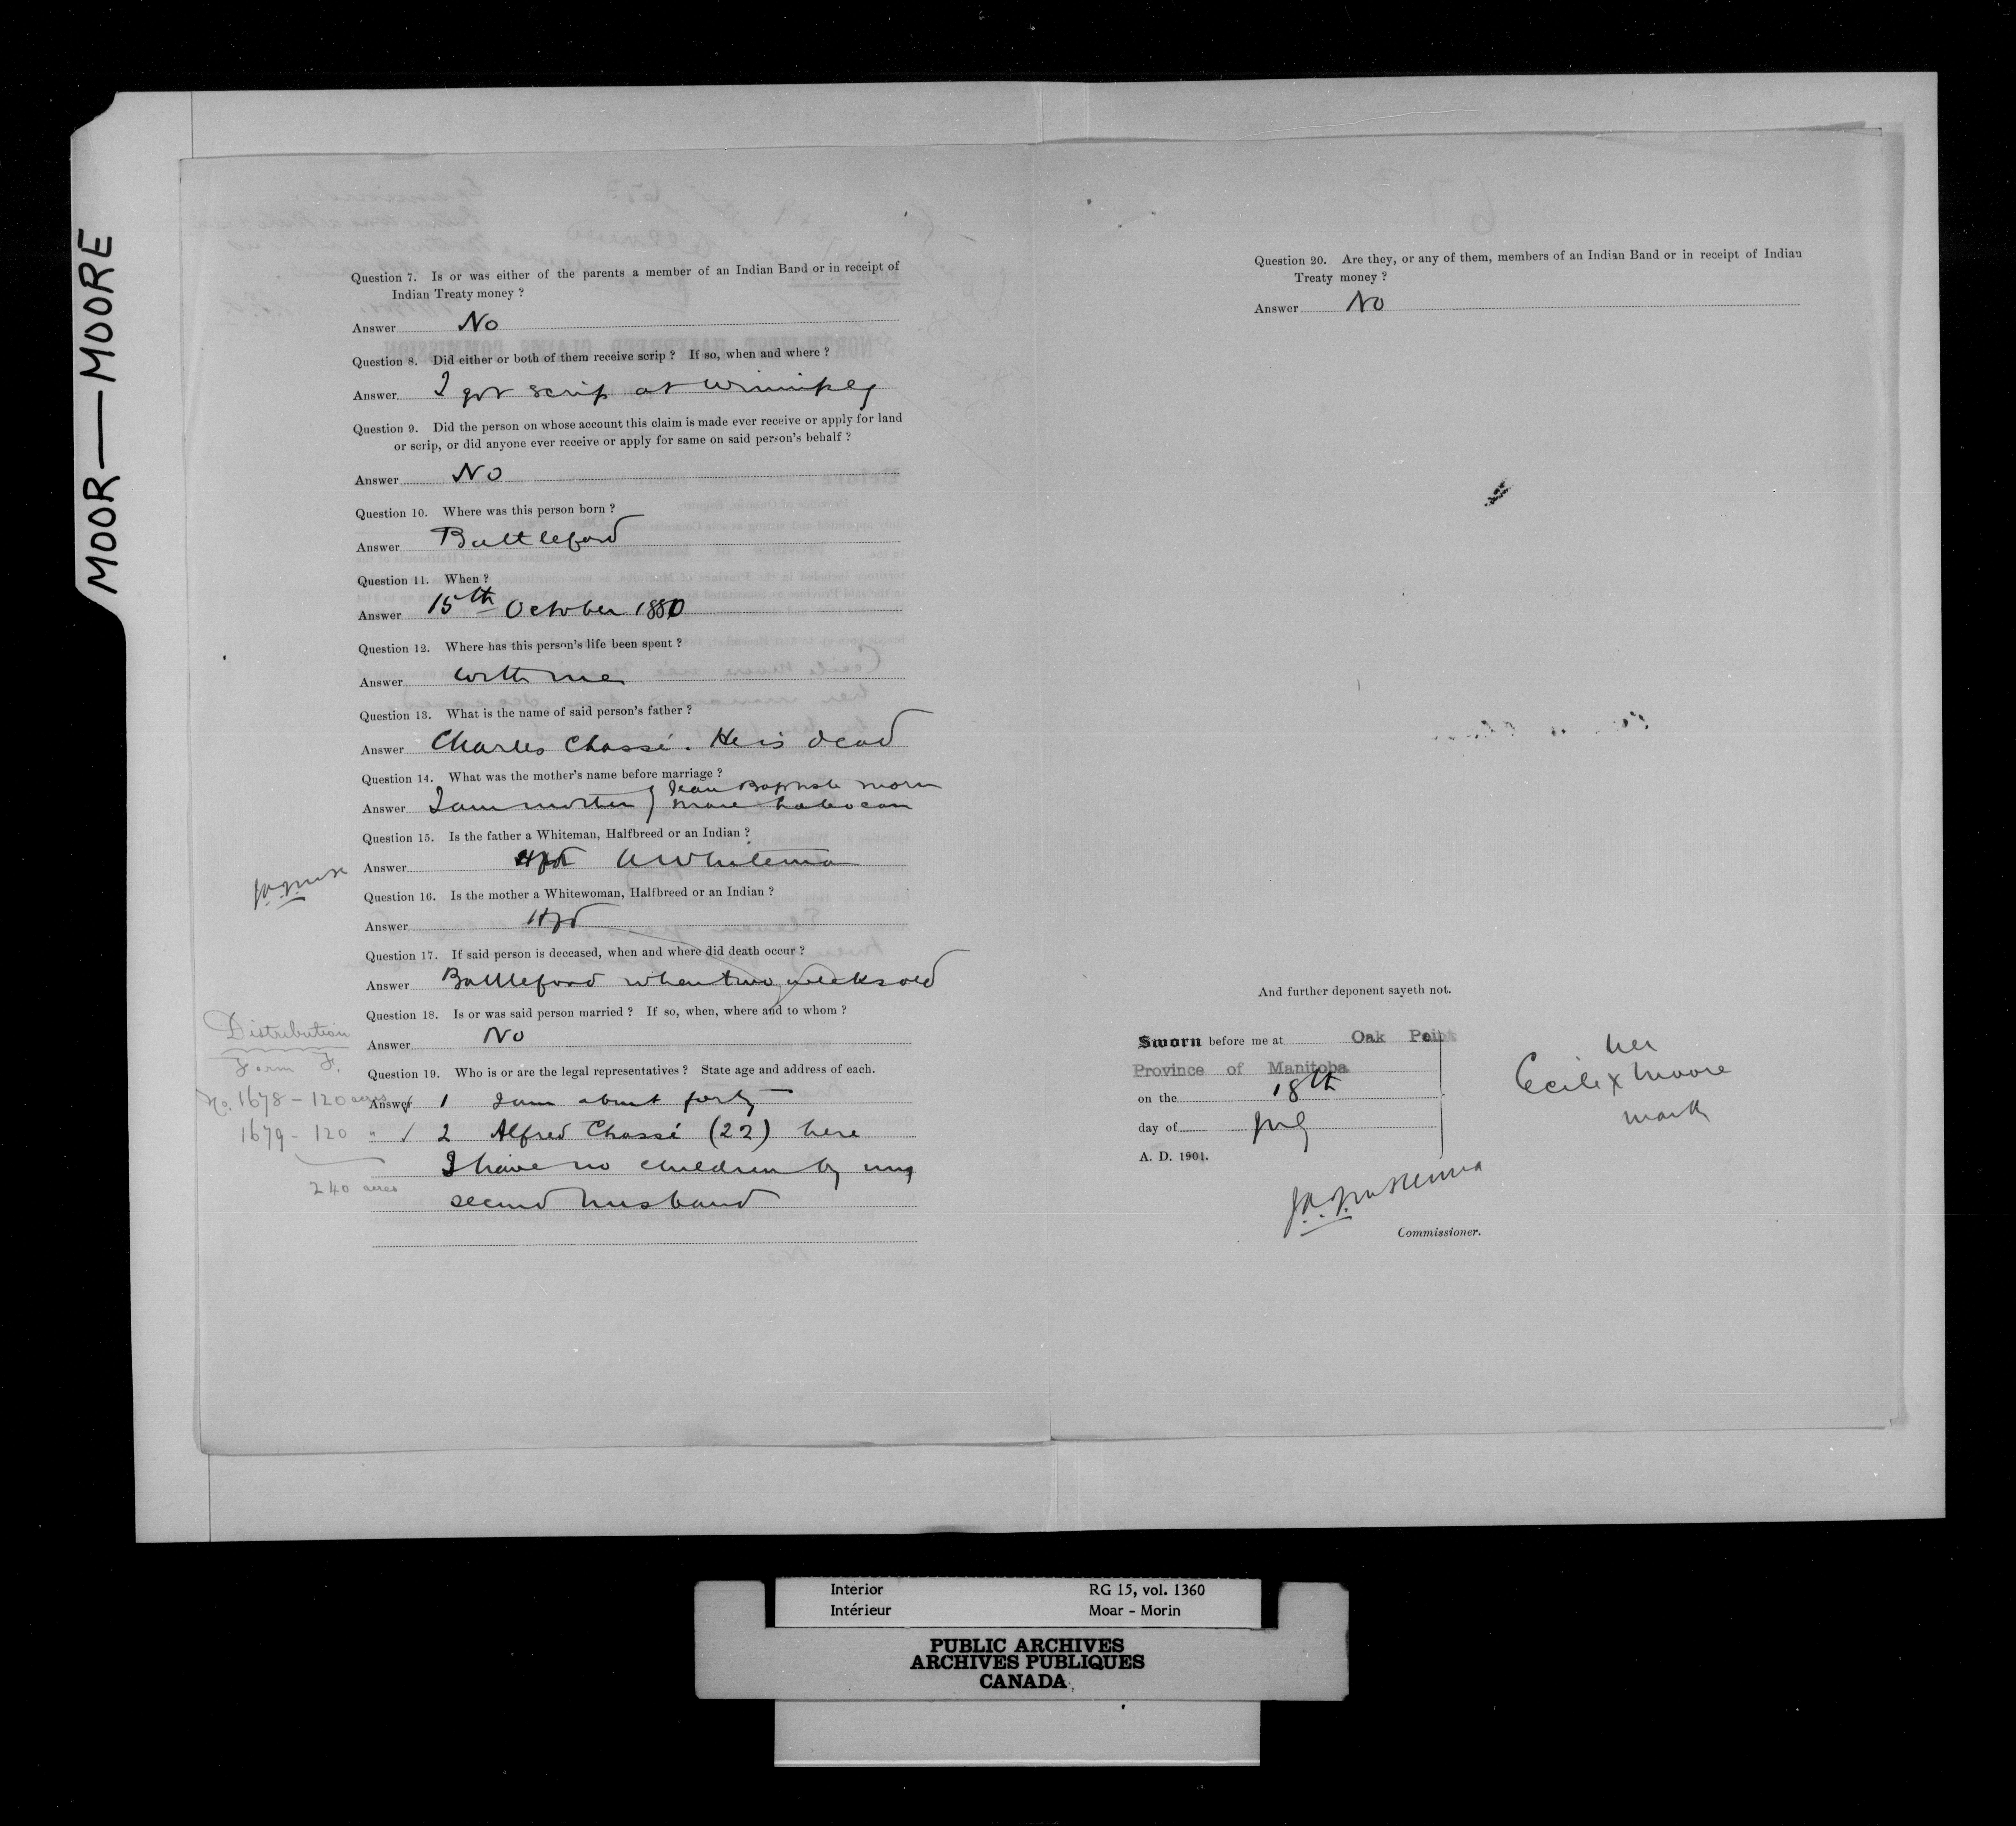 MOOR—MOORE
Question 7. Is or was either of the parents a member of an Indian Band or in receipt of
Indian Treaty money ?
Answer No
Question 8. Did either or both of them receive scrip ? If so, when and where ?
Answer I got scrip at Winnipeg
Question 9. Did the person on whose account this claim is made ever receive or apply for land
or scrip, or did anyone ever receive or apply for same on said person's behalf ?
Answer No
Question 10. Where was this person born ?
Answer Battleford
Question 11. When ?
Answer 15th October 1880
Question 12. Where has this person's life been spent ?
Answer With me
Question 13. What is the name of said person's father ?
Answer Charles Chassé. He is dead
Question 14. What was the mother's name before marriage ?
Jean Baptiste Morin
Answer I am mother
Question 15. Is the father a Whiteman, Halfbreed or an Indian ?
Answer A Whiteman
Question 16. Is the mother a Whitewoman, Halfbreed or an Indian ?
Answer Hfd
Question 17. If said person is deceased, when and where did death occur ?
Answer Battleford when two weeks old
Question 18. Is or was said person married ? If so, when, where and to whom ?
Answer No
Question 19. Who is or are the legal representatives ? State age and address of each.
Distribution
Form F.
No. 1678 – 120 acres
Answer 1 I am about forty
1679 – 120 "
2 Alfred Chassé (22) here
I have no children by my
240 acres
second husband
Question 20. Are they, or any of them, members of an Indian Band or in receipt of Indian
Treaty money ?
Answer No
And further deponent sayeth not.
Sworn before me at Oak Point
Province of Manitoba
on the 18th
day of July
A. D. 1901.
her
Cecile X Moore
mark
Commissioner.
Interior RG 15, vol. 1360
Intérieur Moar - Morin
PUBLIC ARCHIVES
ARCHIVES PUBLIQUES
CANADA